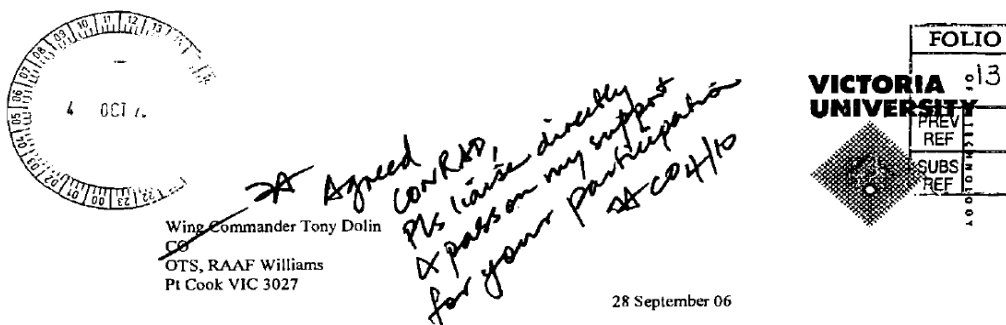 FOLIO
13
VICTORIA
UNIVERSITY
OF TECHNOLOGY
PREV
REF
SUBS
REF
4 OCT
Agreed
CONRAD,
Pls liaise directly
& pass on my support
for your participation
CO 4/10
Wing Commander Tony Dolin
CO
OTS, RAAF Williams
Pt Cook VIC 3027
28 September 06